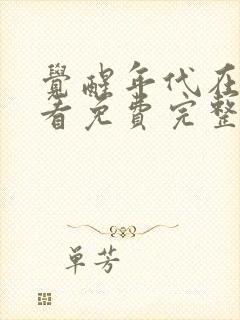 覺醒年代在
看免費完整
單芳